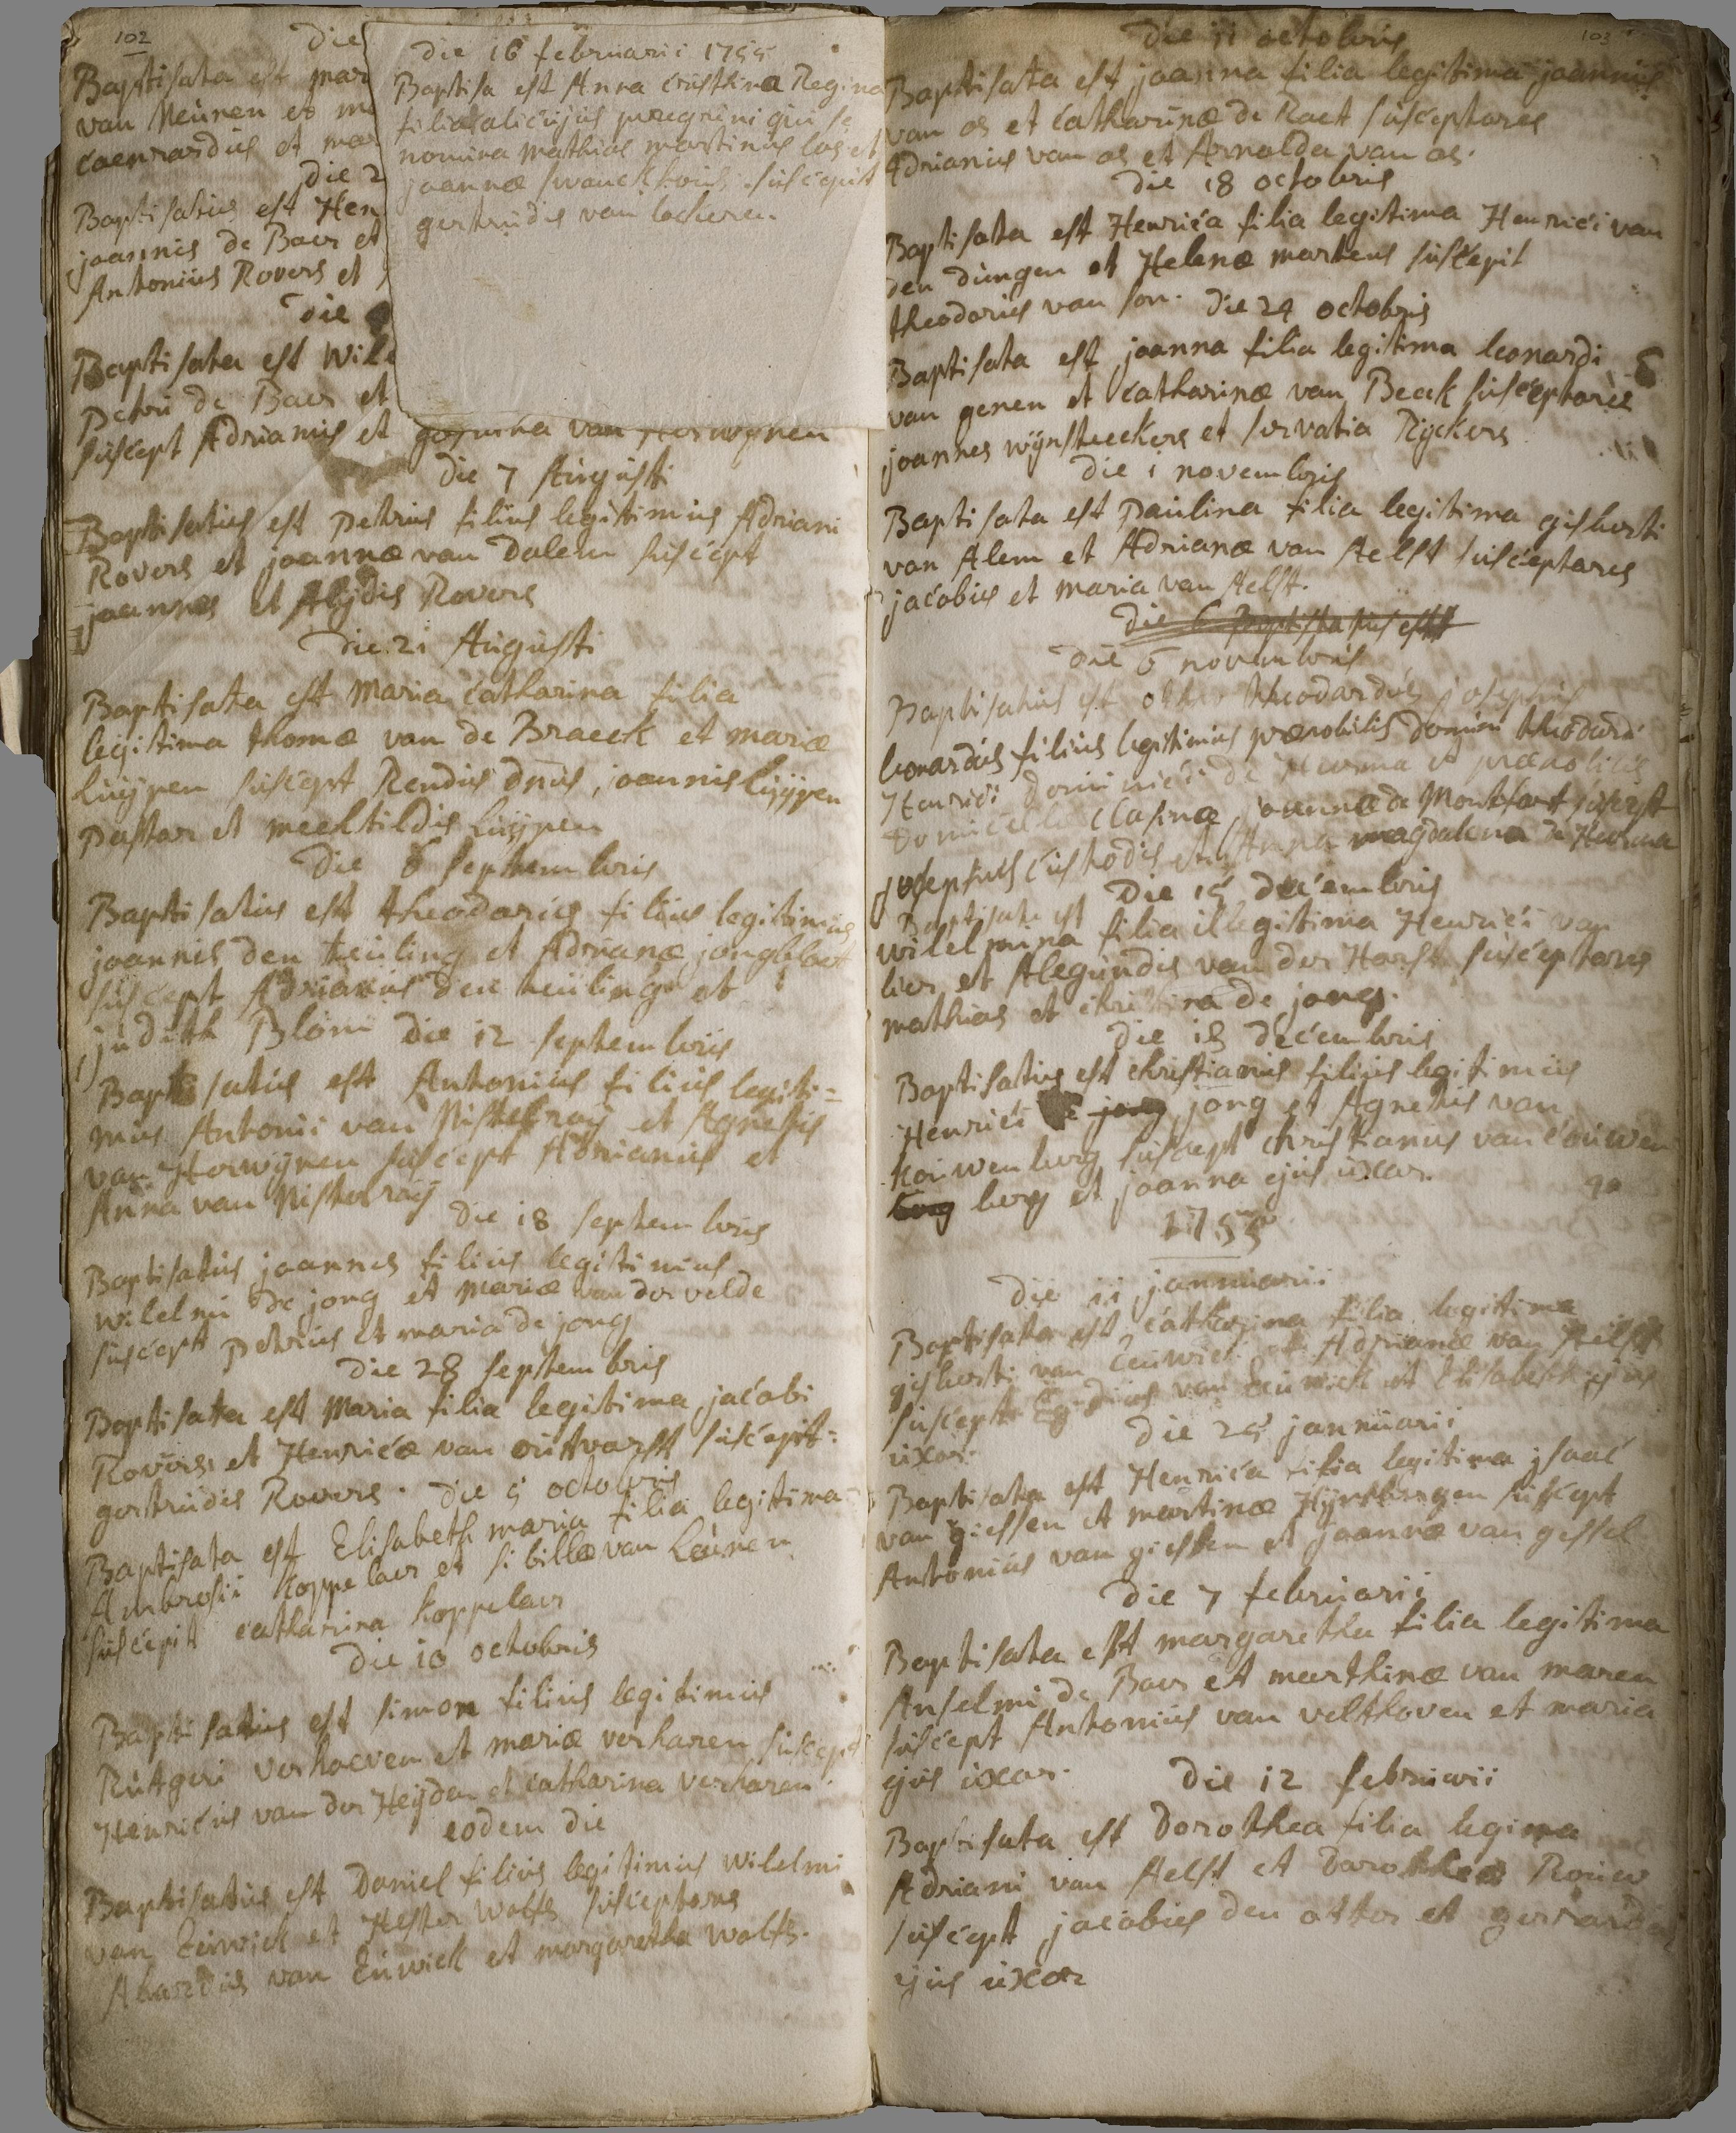 102
die
Baptisata est mar
van Neunen et m
coenrardus et mar
die 2
Baptisatus est Hen
joannis de Baer et
Antonius Rovers et
die
Baptisata est Wil
Petri de Baer et
suscept Adrianus et van Herwijnen
die 16 februarii 1755
Baptisa est Anna Cristina Regina
filia alicujus peregrini qui se
nomina mathias martinus las et
joannæ suscepit
gertrudis van lockeren
die 7 Augusti
Baptisatus est Petrus filius legitimus Adriani
Rovers et joannæ van Dalem suscept
joannes et Alijdis Rovers
die 21 Augusti
Baptisata est Maria Catharina filia
legitima thomæ van de Braeck et mariæ
Luijpen suscept Rendus dnus, joannis Luijpen
Pastor et mechtildis Luijpen
die 6 septembris
Baptisatus est theodorus filius legitimus
joannis den teuling et Adrianæ jongbloet
suscept Adrianus den teuling et
judith Blom die 12 septembris
Baptisatus est Antonius filius legiti=
mus Antonii van Nistelraij et Agnetis
van Herwijnen suscept Adrianus et
Anna van Nistelraij
die 18 septembris
Baptisatus joannes filius legitimus
wilelmi de jong et Mariæ van der velde
suscept petrus et maria de jong
die 28 septembris
Baptisata est Maria filia legitima jacobi
Rovers et Henricæ van outvorst suscepit:
gertrudis Rovers. die 5 octobris
Baptisata est Elisabeth maria filia legitima
Ambrosii Koppelaer et sibillæ van Leunen
suscepit catharina koppelaer
die 10 octobris
Baptisatus est simon filius legitimus
Rutgeri verhoeven et mariæ verharen suscept
Henricus van der Heijden et catharina verharen.
eodem die
Baptisatus est Daniel filius legitimus wilelmi
van Euwick et Hester Wolfs susceptores
Ahardus van Euwick et margaretha wolfs.
103
die 11 octobris
Baptisata est joanna filia legitima joannis
van os et catharinæ de Raet susceptores
Adrianus van os et Arnolda van os.
die 18 octobris
Baptisata est Henrica filia legitima Henrici van
den dungen et Helenæ martens suscepit
theodorus van son. die 24 octobris
Baptisata est joanna filia legitima leonardi
van genen et catharinæ van Beek susceptores
joannes wijnsteekers et servatia Rijckers
die 1 novembris
Baptisata est Paulina filia legitima gisberti
van Alem et Adrianæ van Aelst susceptores
jacobus et maria van Aelst.
die 6 Baptisatus est
die 6 novembris
Baptisatus est otto theodardus josephus
leonardus filius legitimus prænobilis Domini theodardi
Henrici Dominici de Heusma et prænobilis
Domicellæ Clasinæ joannæ de Monkfort suscept
josephus custodis et Anna magdalena de Heusma
die 15 decembris
Baptisata est
wilelmina filia illegitima Henrici van
lier et Alegundis van der Horst susceptores
mathias et christina de jong.
die 18 decembris
Baptisatus est christianus filius legitimus
Henrici de jong jong et Agnetis van
kouwenberg suscept christianus van couwen
berg et joanna ejus uxor.
die 11 jannuarii
Baptisata est catharina filia legitima
gisberti van Euwick et Adrianæ van Aelst
suscept Egidius van Euwick et Elisabeth ejus
uxor.
die 25 jannuarii
Baptisata est Henrica filia legitima jsaac
van giessen et martinæ suscept
Antonius van giessen et joannæ van gessel
die 7 februarii
Baptisata est margaretha filia legitima
Anselmi de Baer et marthinæ van maren
suscept Antonius van velthoven et maria
ejus uxor.
die 12 februarii
Baptisata est Dorothea filia legima
Adriani van Aelst et Dorotheæ Rouw
suscept jacobus den otter et gerrarda
ejus uxor